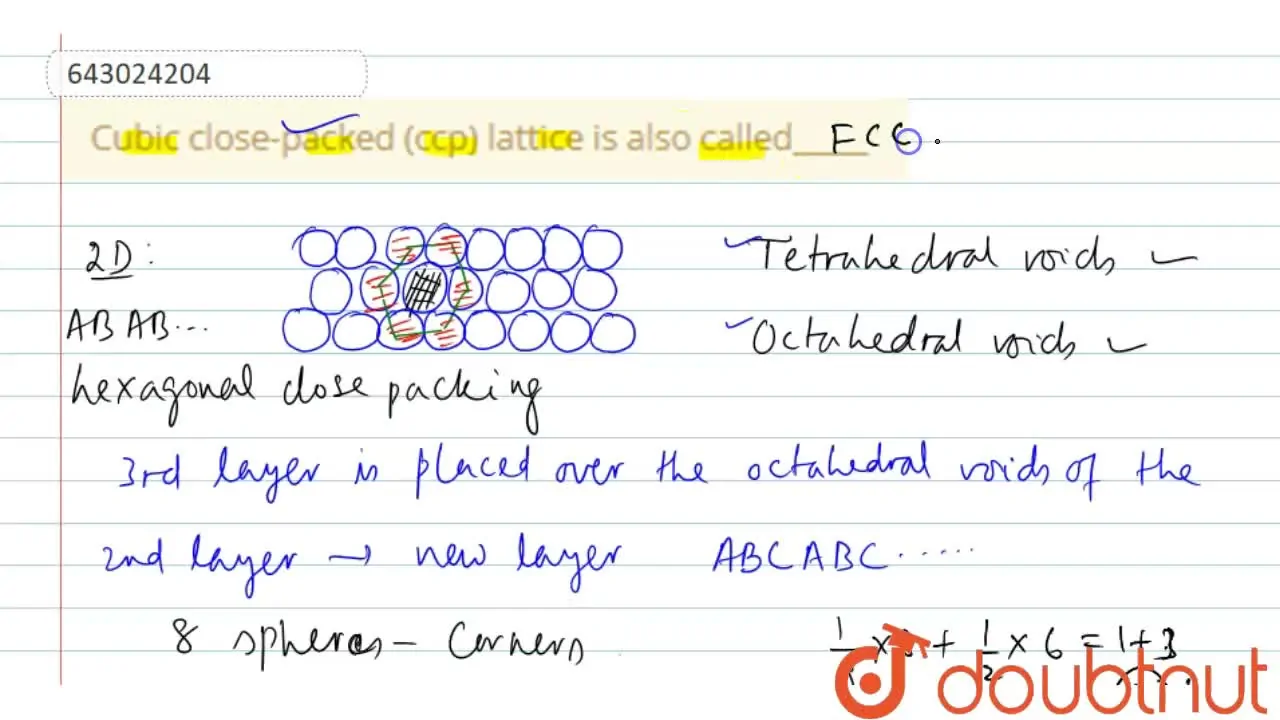 643024204
Cubic close-packed (ccp) lattice is also called_____ FCC.
2D:
Tetrahedral voids
ABAB...
Octahedral voids
hexagonal close packing
3rd layer is placed over the octahedral voids of the
2nd layer → new layer ABCABC......
8 spheres - Corners
+ 1/2 × 6 = 1+3
doubtnut